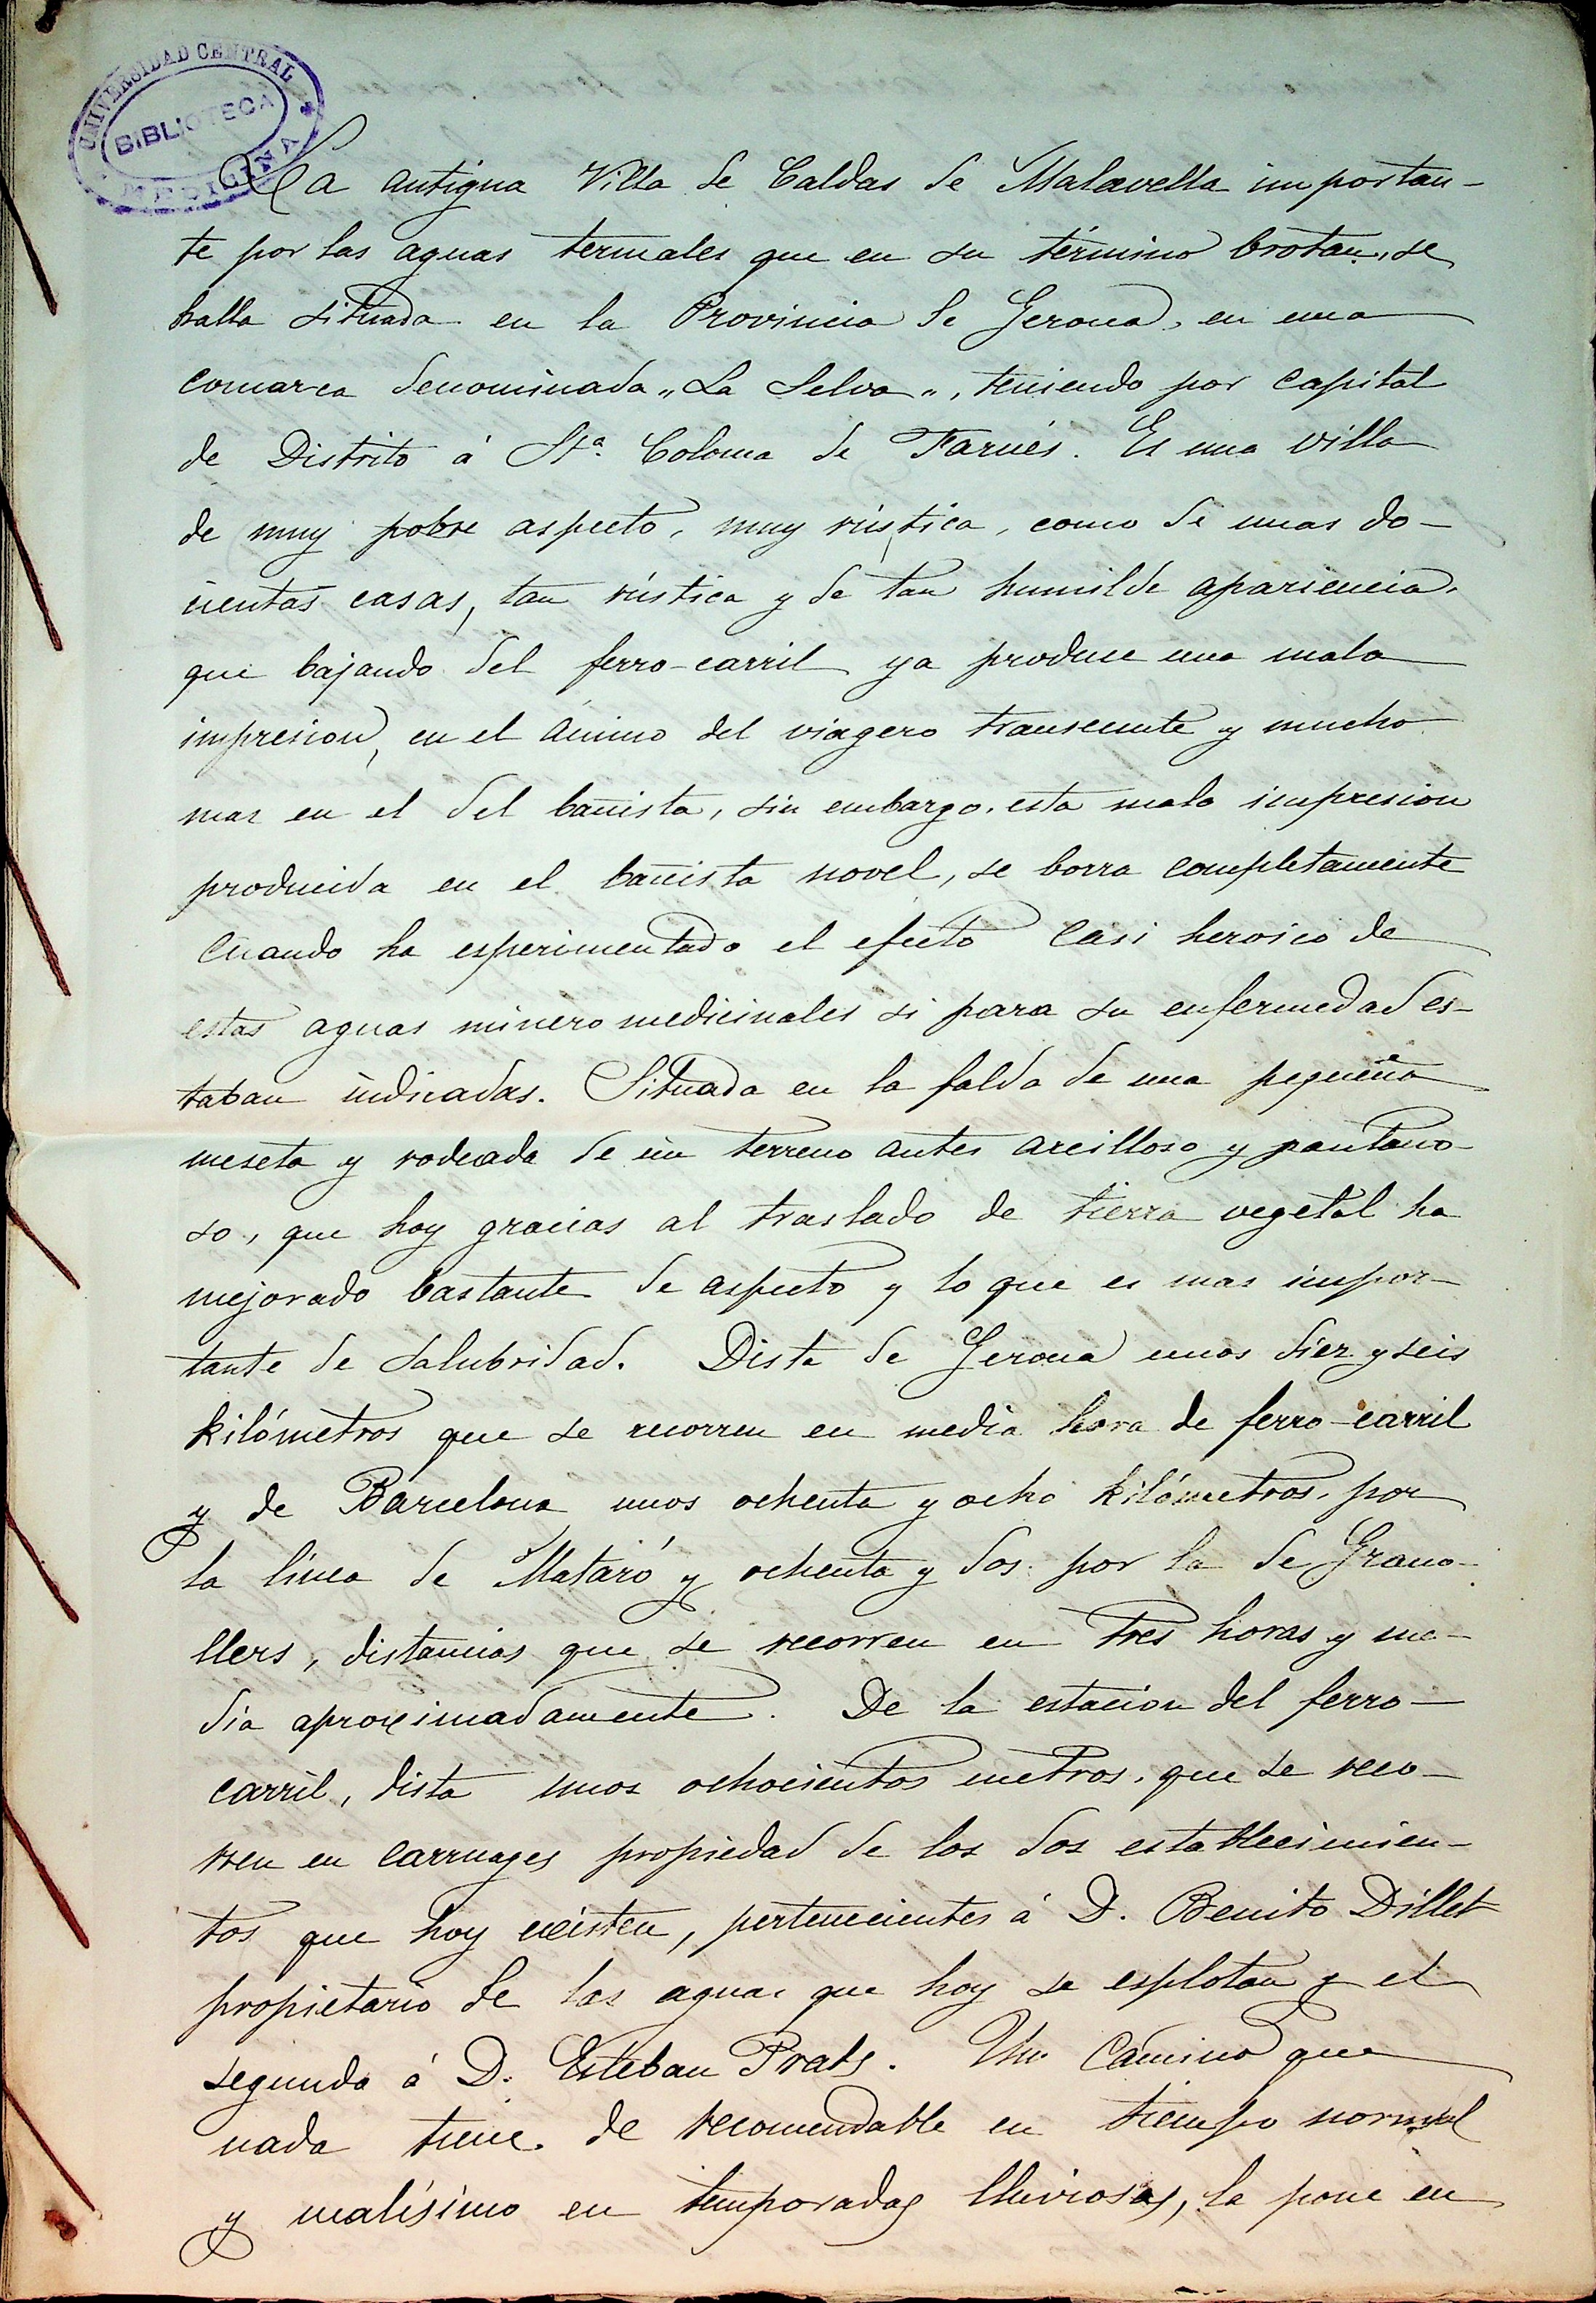 UNIVERSIDAD CENTRAL
BIBLIOTECA
MEDICINA
La antigua Villa de Caldas de Malavella importan-
te por las aguas termales que en su término brotan, se
halla situada en la Provincia de Gerona, en una
comarca denominada „La Selva", teniendo por capital
de Distrito á Sta. Coloma de Farnés. Es una villa
de muy pobre aspecto, muy rústica, como de unas do-
cientas casas, tan rústica y de tan humilde apariencia,
que bajando del ferro-carril ya produce una mala
impresion, en el ánimo del viagero transeunte y mucho
mas en el del bañista, sin embargo, esta mala impresion
producida en el bañista novel, se borra completamente
cuando ha esperimentado el efecto casi heroico de
estas aguas minero medicinales si para su enfermedad es-
taban indicadas. Situada en la falda de una pequeña
meseta y rodeada de un terreno antes arcilloso y pantano-
so, que hoy gracias al traslado de tierra vegetal ha
mejorado bastante de aspecto y lo que es mas impor-
tante de salubridad. Dista de Gerona unos diez y seis
kilómetros que se recorren en media hora de ferro-carril
y de Barcelona unos ochenta y ocho kilómetros, por
la línea de Mataró y ochenta y dos por la de Grano-
llers, distancias que se recorren en tres horas y me-
dia aproximadamente. De la estacion del ferro-
carril, dista unos ochocientos metros, que se reco-
rren en carruages propiedad de los dos establecimien-
tos que hoy existen, pertenecientes á D. Benito Dillet
propietario de las aguas que hoy se esplotan y el
segundo á D. Esteban Prats. Un camino que
nada tiene de recomendable en tiempo normal
y malísimo en temporadas lluviosas, la pone en